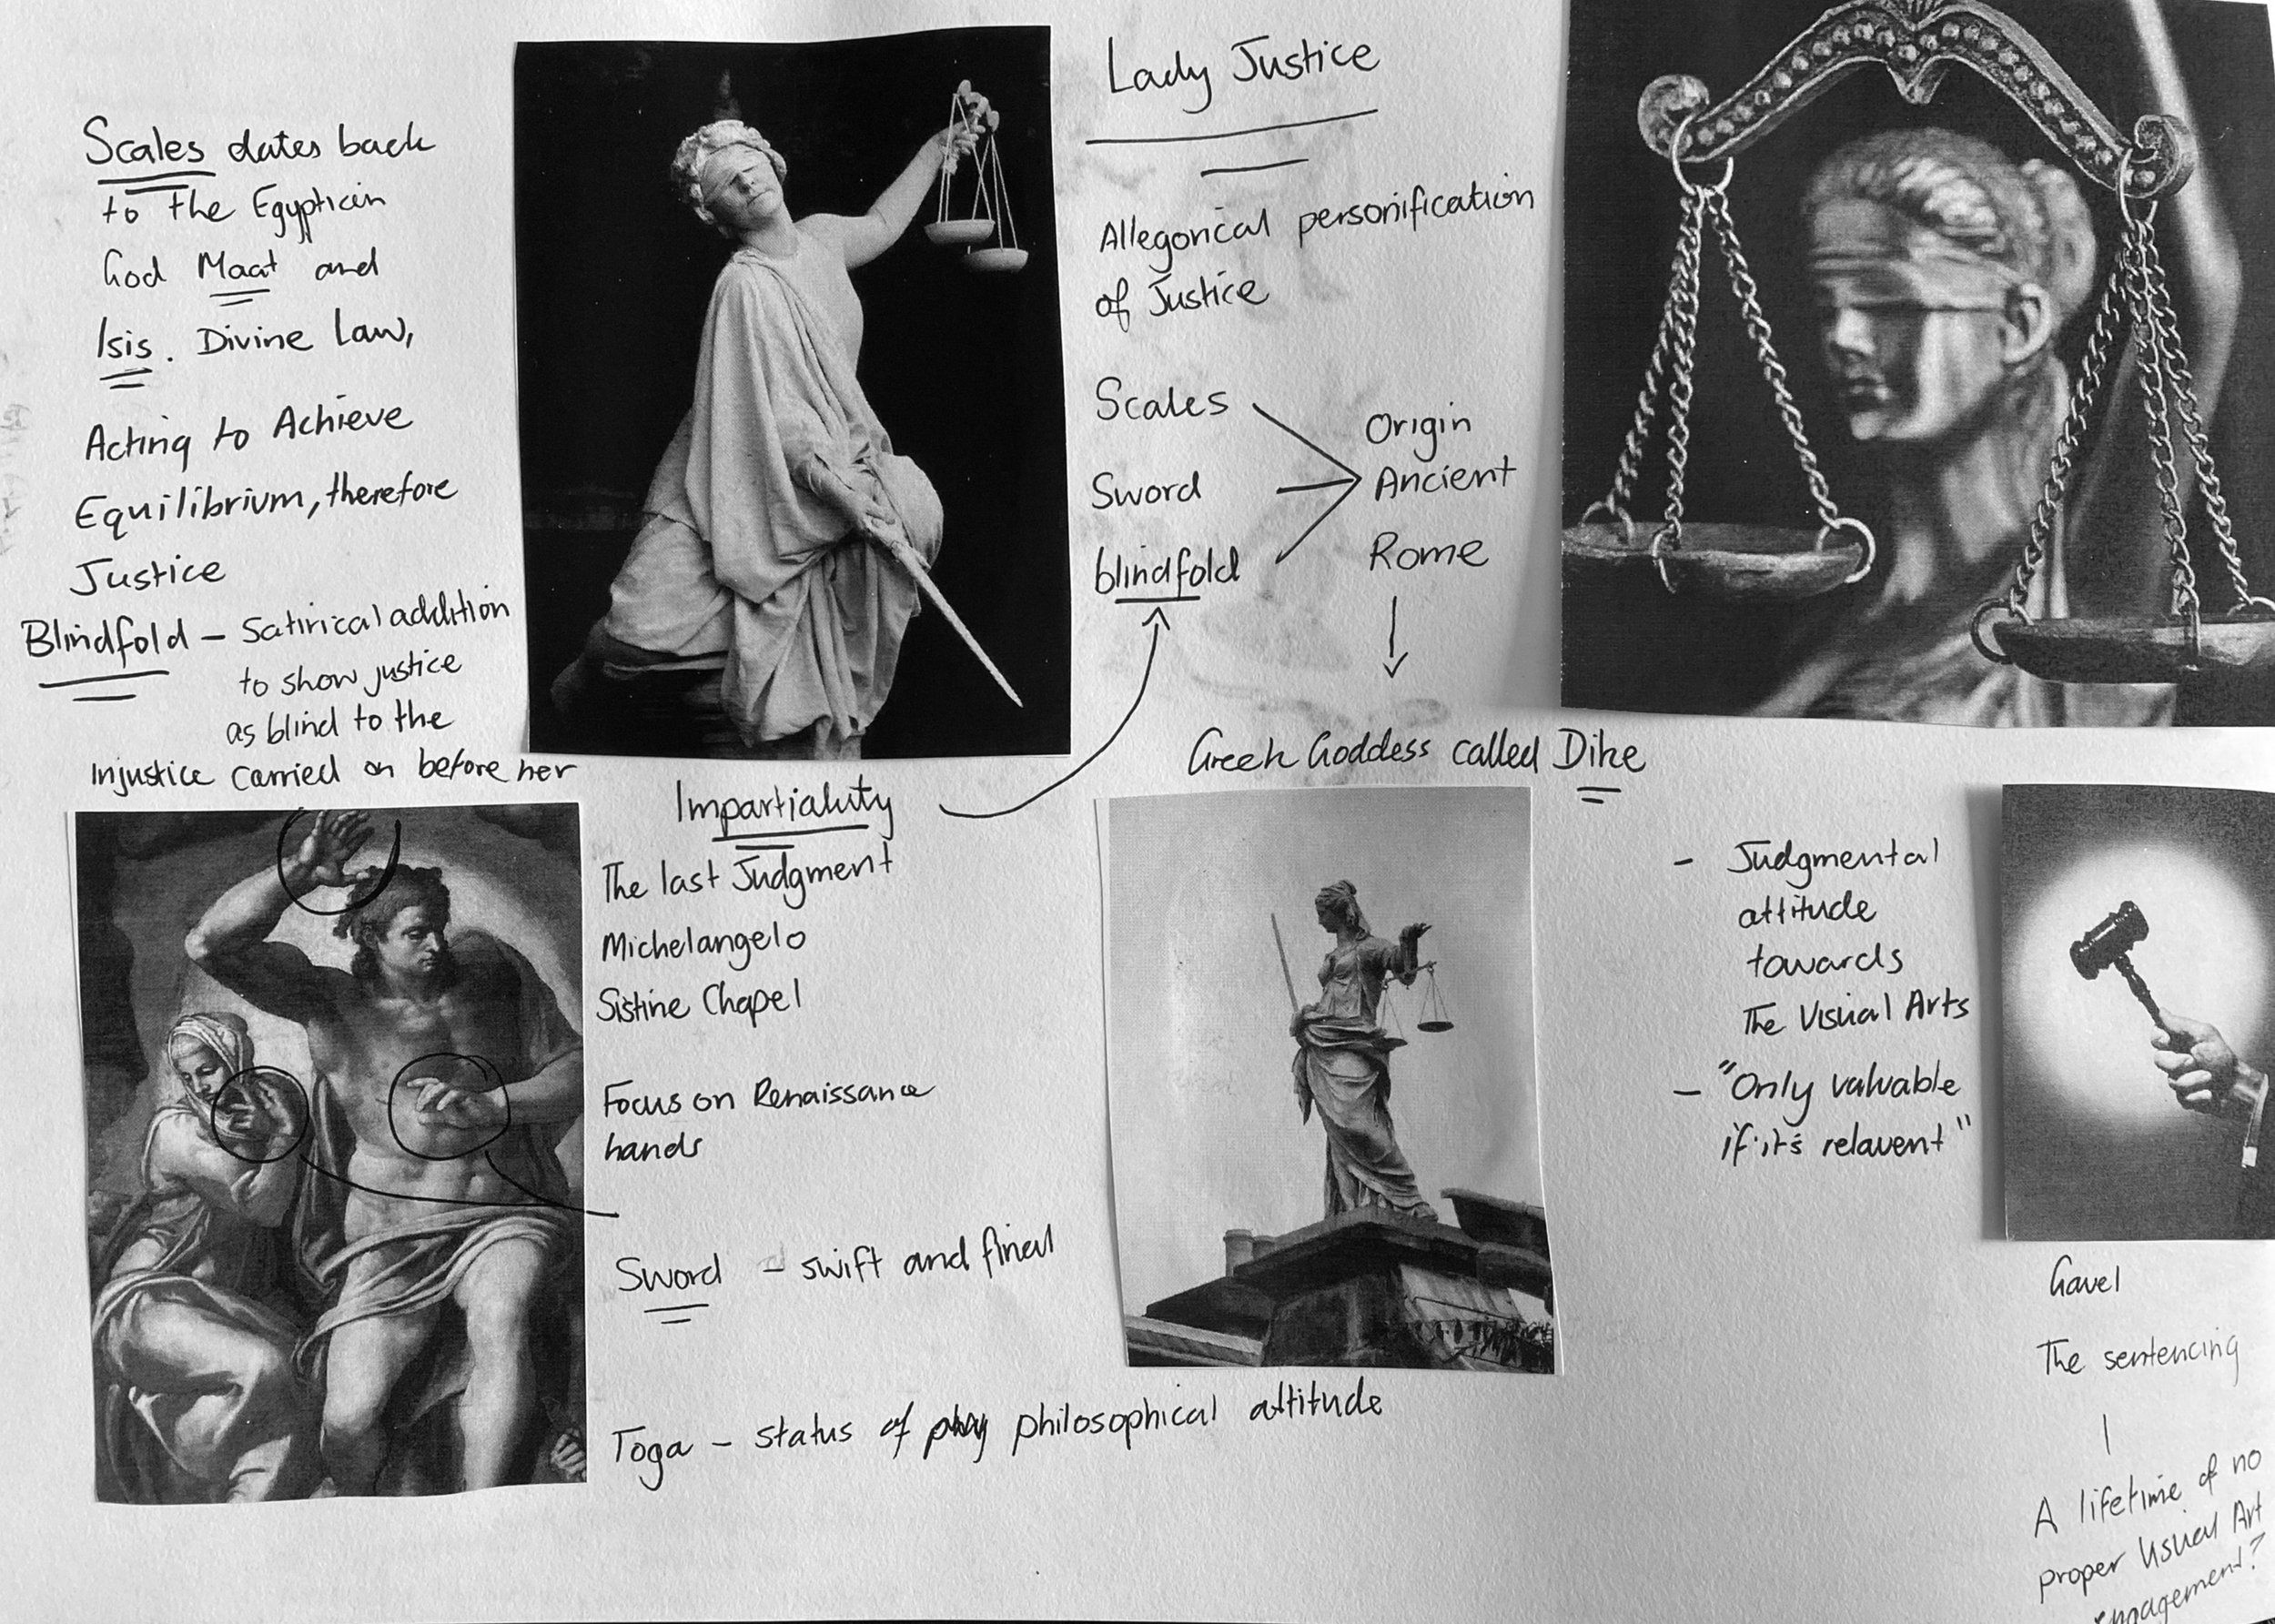 Lady Justice
Allegorical personification
of Justice
Scales
Sword
blindfold
Origin
Ancient
Rome
Greek Goddess called Dike
Scales dates back
to the Egyptian
God Maat and
Isis. Divine Law,
Acting to Achieve
Equilibrium, therefore
Justice
Blindfold – satirical addition
to show justice
as blind to the
Injustice carried on before her
Impartiality
The last Judgment
Michelangelo
Sistine Chapel
Focus on Renaissance
hands
Sword – swift and final
Toga – status of philosophical attitude
- Judgmental
attitude
towards
The Visual Arts
- "Only valuable
if it's relavent"
Gavel
The sentencing
A lifetime of no
proper Visual Art
engagement?